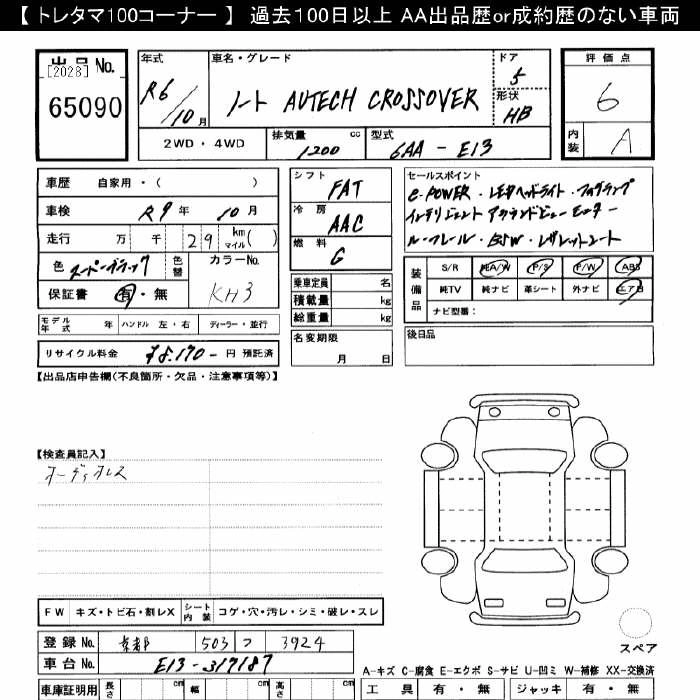 【 トレタマ100コーナー 】 過去100日以上 AA出品歴or成約歴のない車両
出品 No.
[2028]
65090
年式
R6/10月
車名・グレード
ノート AUTECH CROSSOVER
ドア
5
形状
HB
評価点
6
内装 A
2WD・4WD
排気量 1200 cc
型式 6AA - E13
車歴 自家用・( )
車検 R9年 10月
走行 万 千 29 km マイル ( )
色 スーパーブラック 色替
カラーNo. KH3
保証書 有・無
シフト FAT
冷房 AAC
燃料 G
セールスポイント
e-POWER・LEDヘッドライト・フォグランプ
インテリジェント アラウンドビューモニター
ルーフレール・BSW・レザレットシート
乗車定員 名
積載量 kg
総重量 kg
装備品
S/R 純A/W P/S P/W ABS
純TV 純ナビ 革シート 外ナビ エアB
ナビ型番:
モデル年式 年 ハンドル 左・右 ディーラー・並行
リサイクル料金 ¥8,170- 円 預託済
名変期限
月 日
後日品
【出品店申告欄(不良箇所・欠品・注意事項等)】
【検査員記入】
オーディオレス
FW キズ・トビ石・割レX シート内装 コゲ・穴・汚レ・シミ・破レ・スレ
登録 No. 京都 503 つ 3924
車台 No. E13-317187
スペア
A-キズ C-腐食 E-エクボ S-サビ U-凹ミ W-補修 XX-交換済
車庫証明用 長さ cm 幅 cm 高さ cm
工具 有・無 ジャッキ 有・無